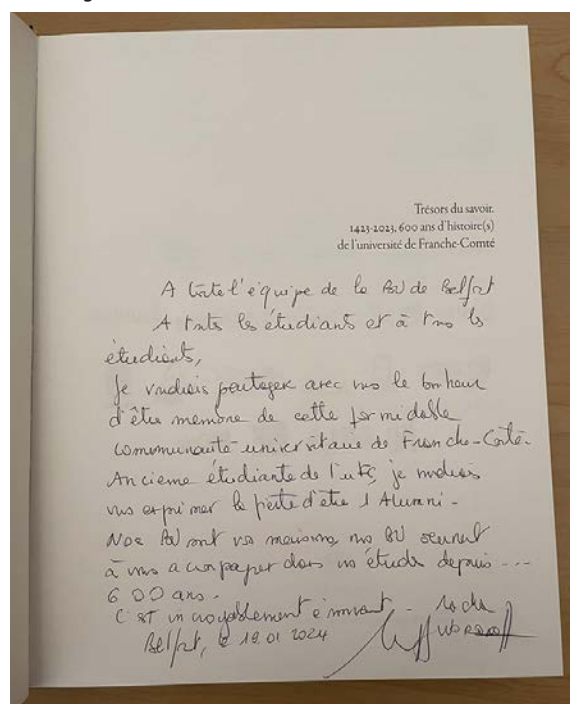 Trésors du savoir.
1423-2023, 600 ans d'histoire(s)
de l'université de Franche-Comté
A toute l'équipe de la BU de Belfort
A toutes les étudiants et à tous les
étudiants,
Je voudrais partager avec vous le bonheur
d'être membre de cette formidable
communauté universitaire de Franche-Comté.
Ancienne étudiante de l'UFC, je voudrais
vous exprimer la fierté d'être 1 Alumni -
Nos BU sont vos maisons, nos BU servent
à vous accompagner dans vos études depuis ...
600 ans.
C'est incroyablement émouvant -
Belfort, le 19.01 2024